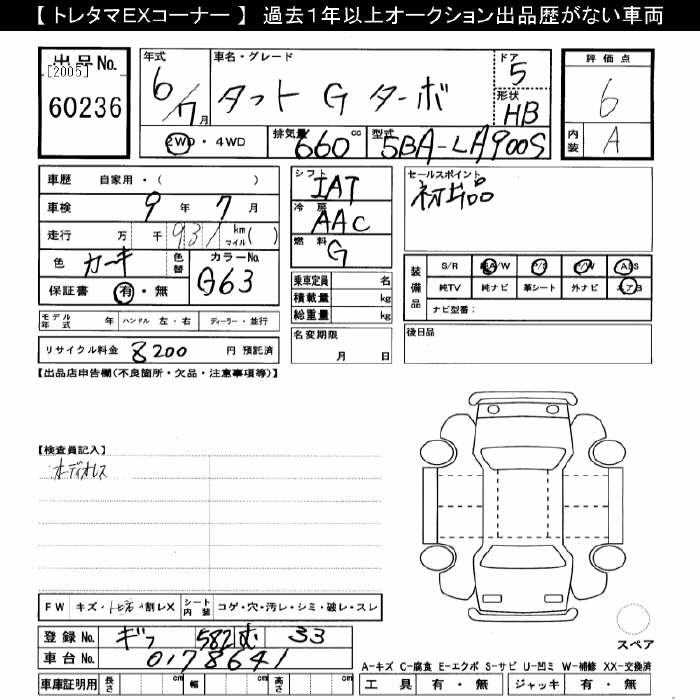 【 トレタマEXコーナー 】 過去1年以上オークション出品歴がない車両
出品No.
[2005]
60236
年式
6/7月
車名・グレード
タフト G ターボ
ドア
5
形状
HB
2WD・4WD
排気量
660 cc
型式
5BA-LA900S
評価点
6
内装
A
車歴 自家用・( )
車検 9年 7月
走行 万 千 931 km マイル( )
色 カーキ 色替 カラーNo.
G63
保証書 有・無
モデル年式 年 ハンドル 左・右 ディーラー・並行
リサイクル料金 8200 円 預託済
シフト
IAT
冷房
AAC
燃料
G
乗車定員 名
積載量 kg
総重量 kg
名変期限
月 日
セールスポイント
初出品
装備品
S/R 純A/W P/S P/W ABS
純TV 純ナビ 革シート 外ナビ エアB
ナビ型番:
後日品
【出品店申告欄(不良箇所・欠品・注意事項等)】
【検査員記入】
オーディオレス
FW キズ・トビ石・割レX シート内装 コゲ・穴・汚レ・シミ・破レ・スレ
登録No. ギフ 582 む 33
車台No. 0178641
車庫証明用 長さ cm 幅 cm 高さ cm
スペア
A-キズ C-腐食 E-エクボ S-サビ U-凹ミ W-補修 XX-交換済
工具 有・無 ジャッキ 有・無